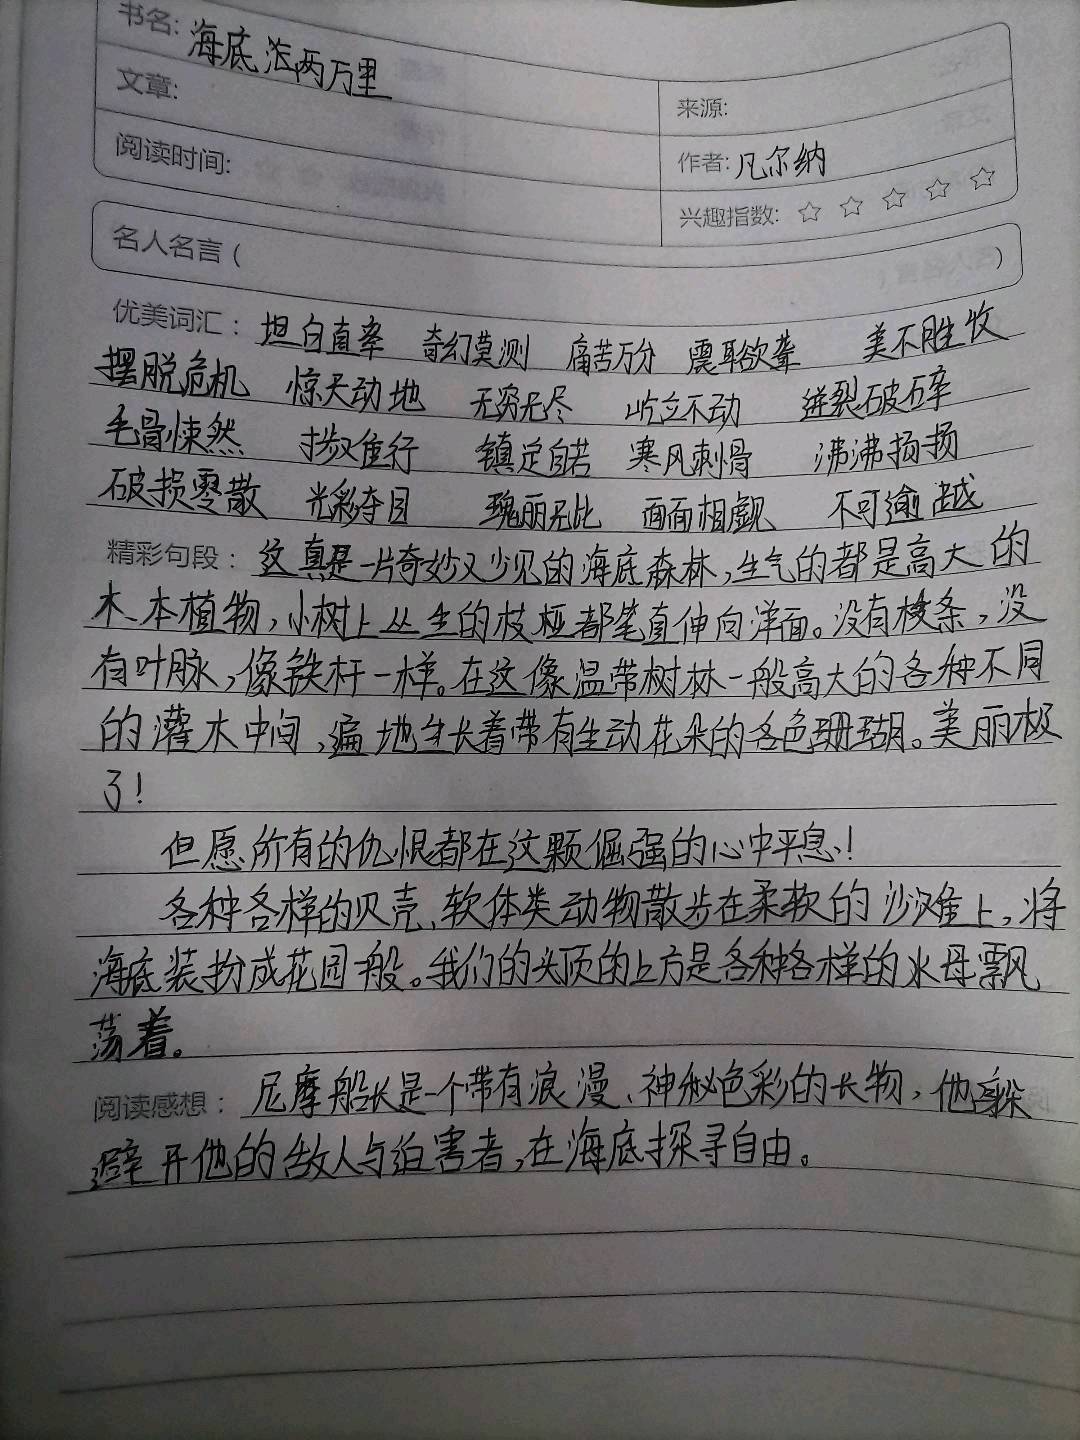 书名: 海底两万里
文章:
来源:
阅读时间:
作者: 凡尔纳
兴趣指数: ☆ ☆ ☆ ☆ ☆
名人名言 ( )
优美词汇: 坦白直率 奇幻莫测 痛苦万分 震耳欲聋 美不胜收
摆脱危机 惊天动地 无穷无尽 屹立不动 迸裂破碎
毛骨悚然 择行 镇定自若 寒风刺骨 沸沸扬扬
破损零散 光彩夺目 瑰丽无比 面面相觑 不可逾越
精彩句段: 这真是一片奇妙又少见的海底森林,生气的都是高大的
木本植物,小树上丛生的枝桠都笔直伸向洋面。没有枝条,没
有叶脉,像铁杆一样。在这像温带树林一般高大的各种不同
的灌木中间,遍地生长着带有生动花朵的各色珊瑚。美丽极
了!
但愿所有的仇恨都在这颗倔强的心中平息!
各种各样的贝壳、软体类动物散步在柔软的沙滩上,将
海底装扮成花园般。我们的头顶的上方是各种各样的水母飘
荡着。
阅读感想: 尼摩船长是一个带有浪漫、神秘色彩的长物,他躲
避开他的敌人与迫害者,在海底探寻自由。